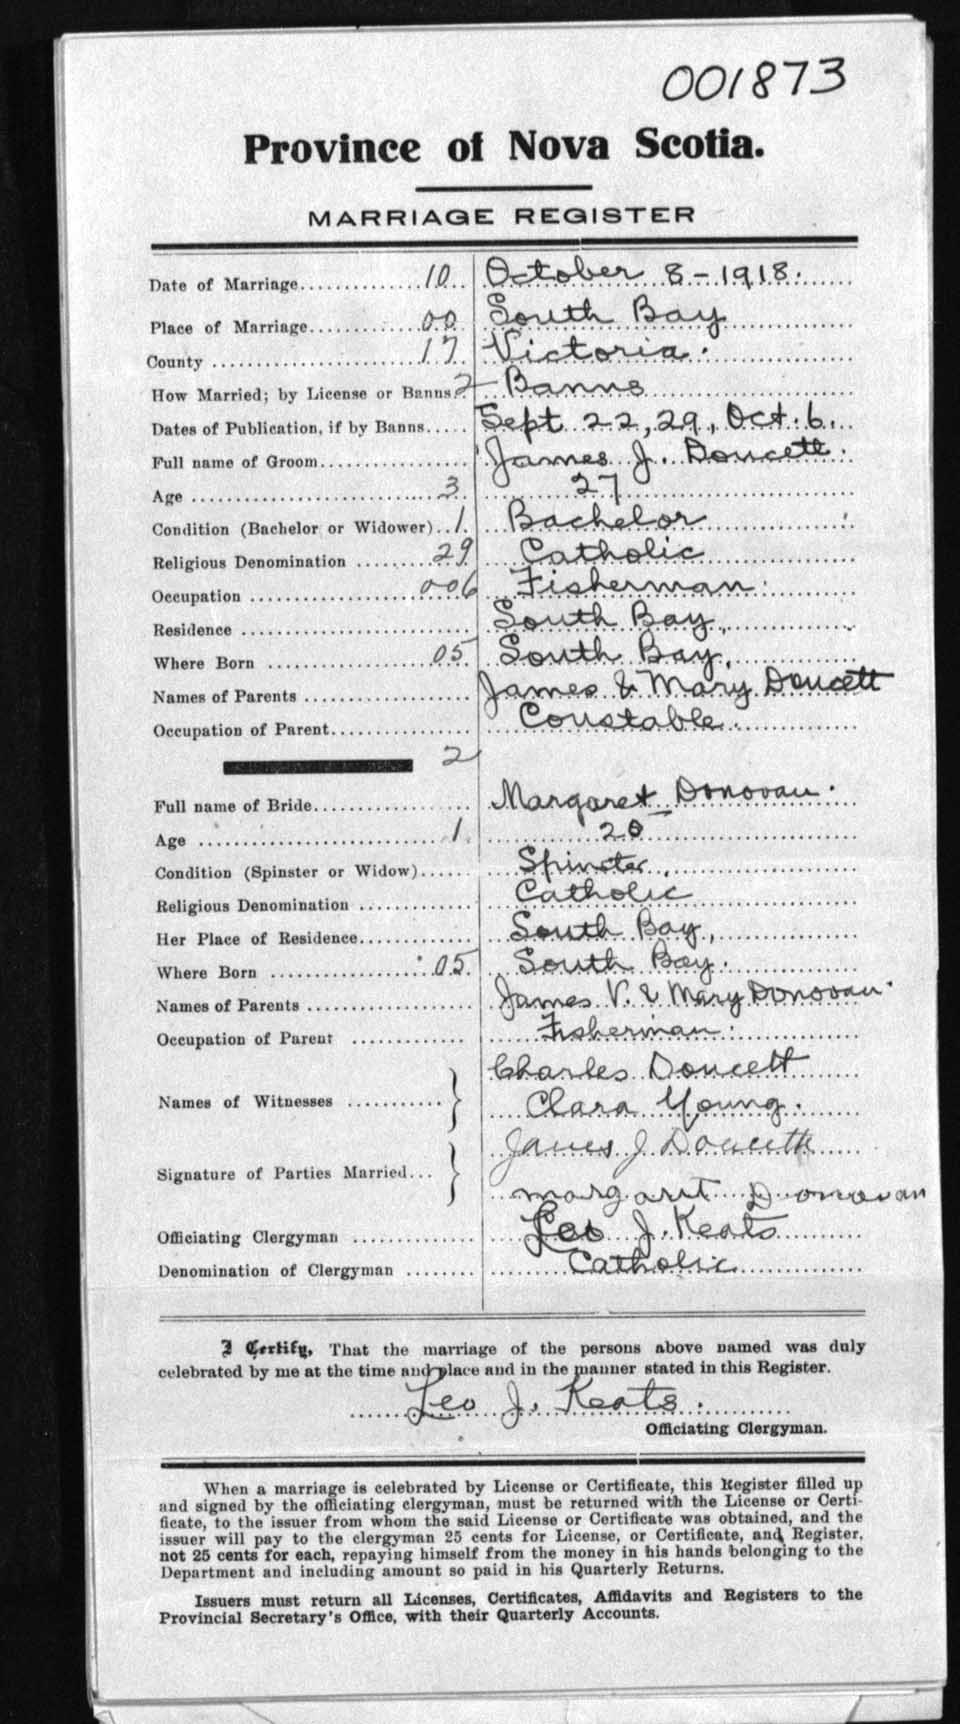 001873
Province of Nova Scotia.
MARRIAGE REGISTER
Date of Marriage.............. 10 October 8 - 1918.
Place of Marriage............. 00 South Bay
County ....................... 17 Victoria.
How Married; by License or Banns.. 2 Banns
Dates of Publication, if by Banns..... Sept 22, 29, Oct. 6.
Full name of Groom.................. James J. Doucett.
Age .......................... 3 27
Condition (Bachelor or Widower).. 1. Bachelor
Religious Denomination ......... 29 Catholic
Occupation ................... 006 Fisherman.
Residence .......................... South Bay,
Where Born ................. 05 South Bay,
Names of Parents ................... James & Mary Doucett
Occupation of Parent................ Constable.
2
Full name of Bride.................. Margaret Donovan.
Age .......................... 1. 20
Condition (Spinster or Widow)...... Spinster,
Religious Denomination ............. Catholic
Her Place of Residence............. South Bay,
Where Born ................. 05. South Bay.
Names of Parents ................... James V. & Mary Donovan.
Occupation of Parent ............. Fisherman.
Charles Doucett
Names of Witnesses ........... } Clara Young.
James J Doucette
Signature of Parties Married... }
margarit Donovan
Officiating Clergyman ............. Leo J. Keats
Denomination of Clergyman ........ Catholic
I Certify, That the marriage of the persons above named was duly
celebrated by me at the time and place and in the manner stated in this Register.
Leo J. Keats.
Officiating Clergyman.
When a marriage is celebrated by License or Certificate, this Register filled up
and signed by the officiating clergyman, must be returned with the License or Certi-
ficate, to the issuer from whom the said License or Certificate was obtained, and the
issuer will pay to the clergyman 25 cents for License, or Certificate, and Register,
not 25 cents for each, repaying himself from the money in his hands belonging to the
Department and including amount so paid in his Quarterly Returns.
Issuers must return all Licenses, Certificates, Affidavits and Registers to the
Provincial Secretary's Office, with their Quarterly Accounts.